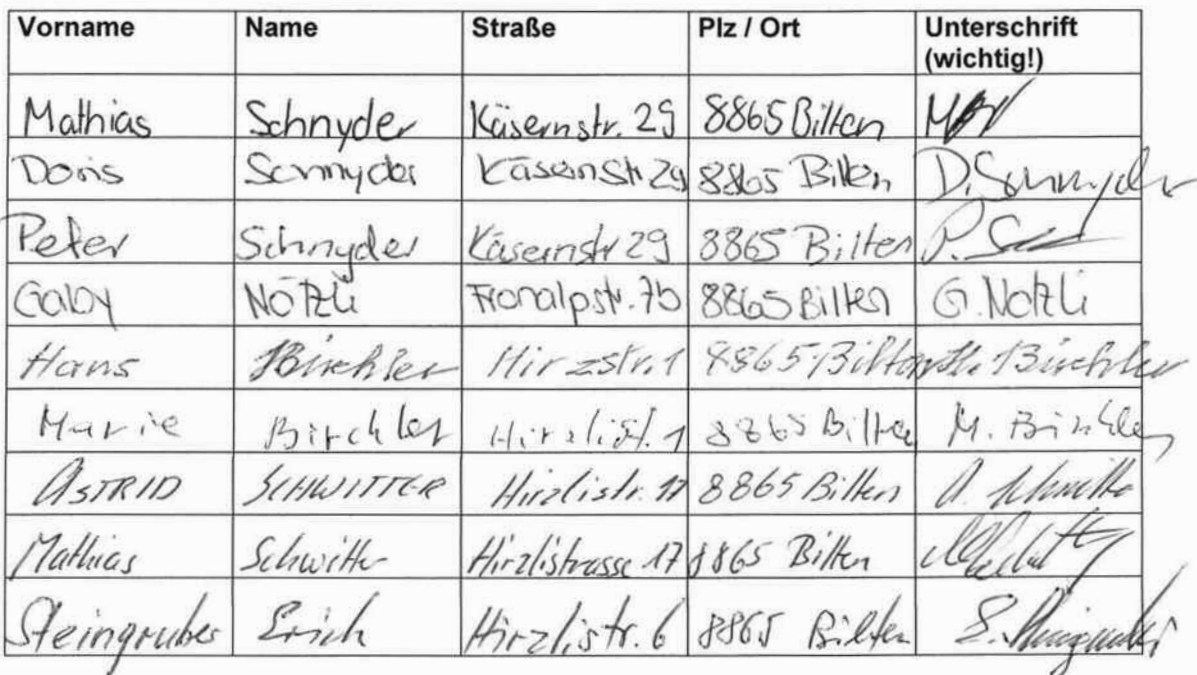 Vorname Name Straße Plz / Ort Unterschrift
(wichtig!)
Mathias Schnyder Käsernstr. 29 8865 Bilten
Doris Schnyder Käsernstr 29 8865 Bilten D. Schnyder
Peter Schnyder Käsernstr 29 8865 Bilten P.
Gaby Nötzli Fronalpstr. 7b 8865 Bilten G. Nötzli
Hans Birchler Hirzstr. 1 8865 Bilten H. Birchler
Marie Birchler Hirzlistr. 1 8865 Bilten M. Birchler
ASTRID SCHWITTER Hirzlistr. 17 8865 Bilten A. Schwitter
Mathias Schwitter Hirzlistrasse 17 8865 Bilten
Steingruber Erich Hirzlistr. 6 8865 Bilten E. Steingruber